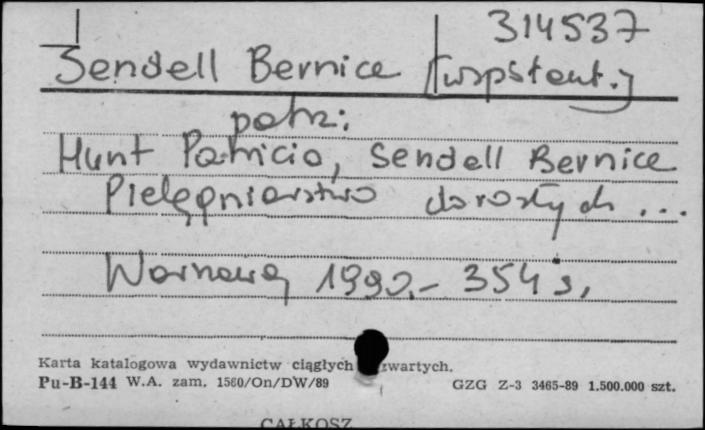 314537
Sendell Bernice [współaut.]
patrz:
Hunt Patricia, Sendell Bernice
Pielęgniarstwo dorosłych ...
Warszawa 1990.- 354 s.
Karta katalogowa wydawnictw ciągłych zwartych.
Pu-B-144 W.A. zam. 1560/On/DW/89 GZG Z-3 3465-89 1.500.000 szt.
CAŁKOSZ